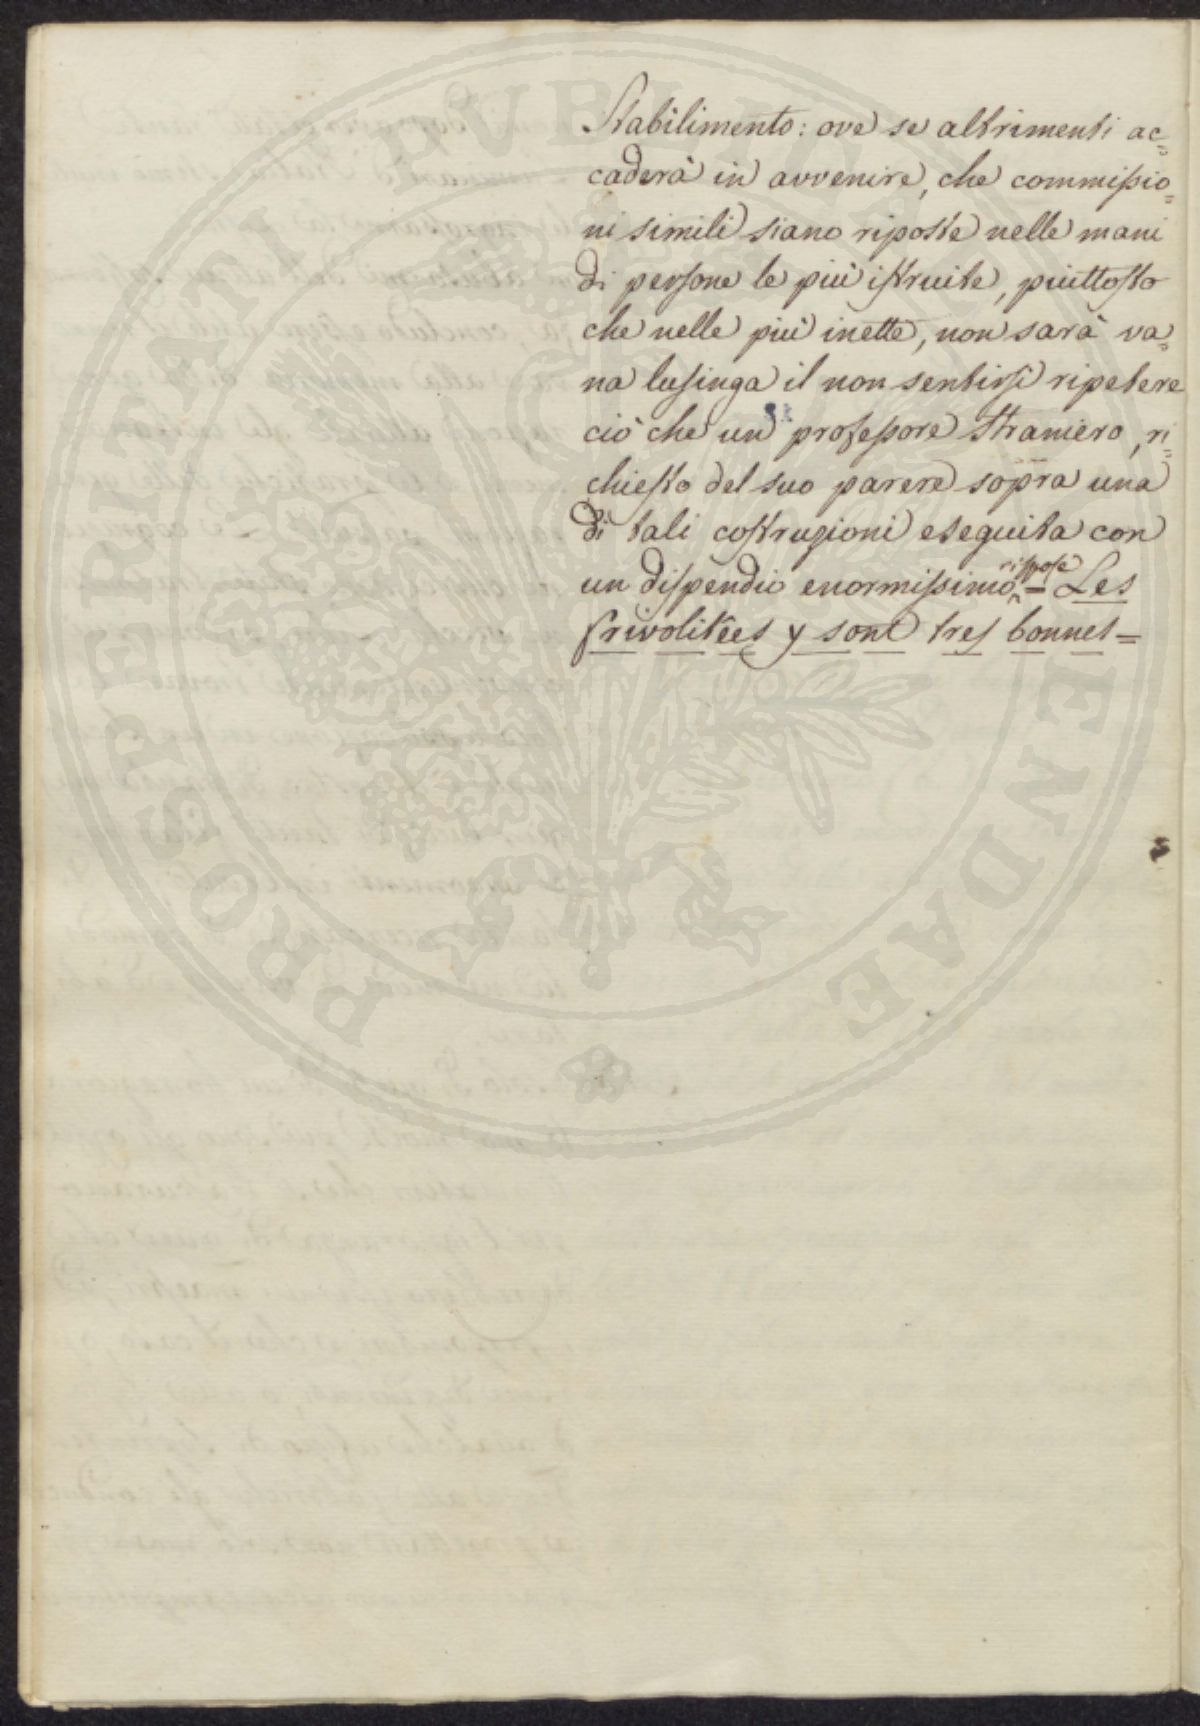 Stabilimento: ove se altrimenti ac=
caderà in avvenire, che commissio=
ni simili siano riposte nelle mani
di persone le più istruite, piuttosto
che nelle più inette, non sarà va=
na lusinga il non sentirsi ripetere
ciò che un professore straniero, ri=
chiesto del suo parere sopra una
di tali costruzioni eseguita con
un dispendio enormissimo rispose = Les
frivolitées y sont tres bonnes =
PROSPERITATI PUBLICAE AUGENDAE